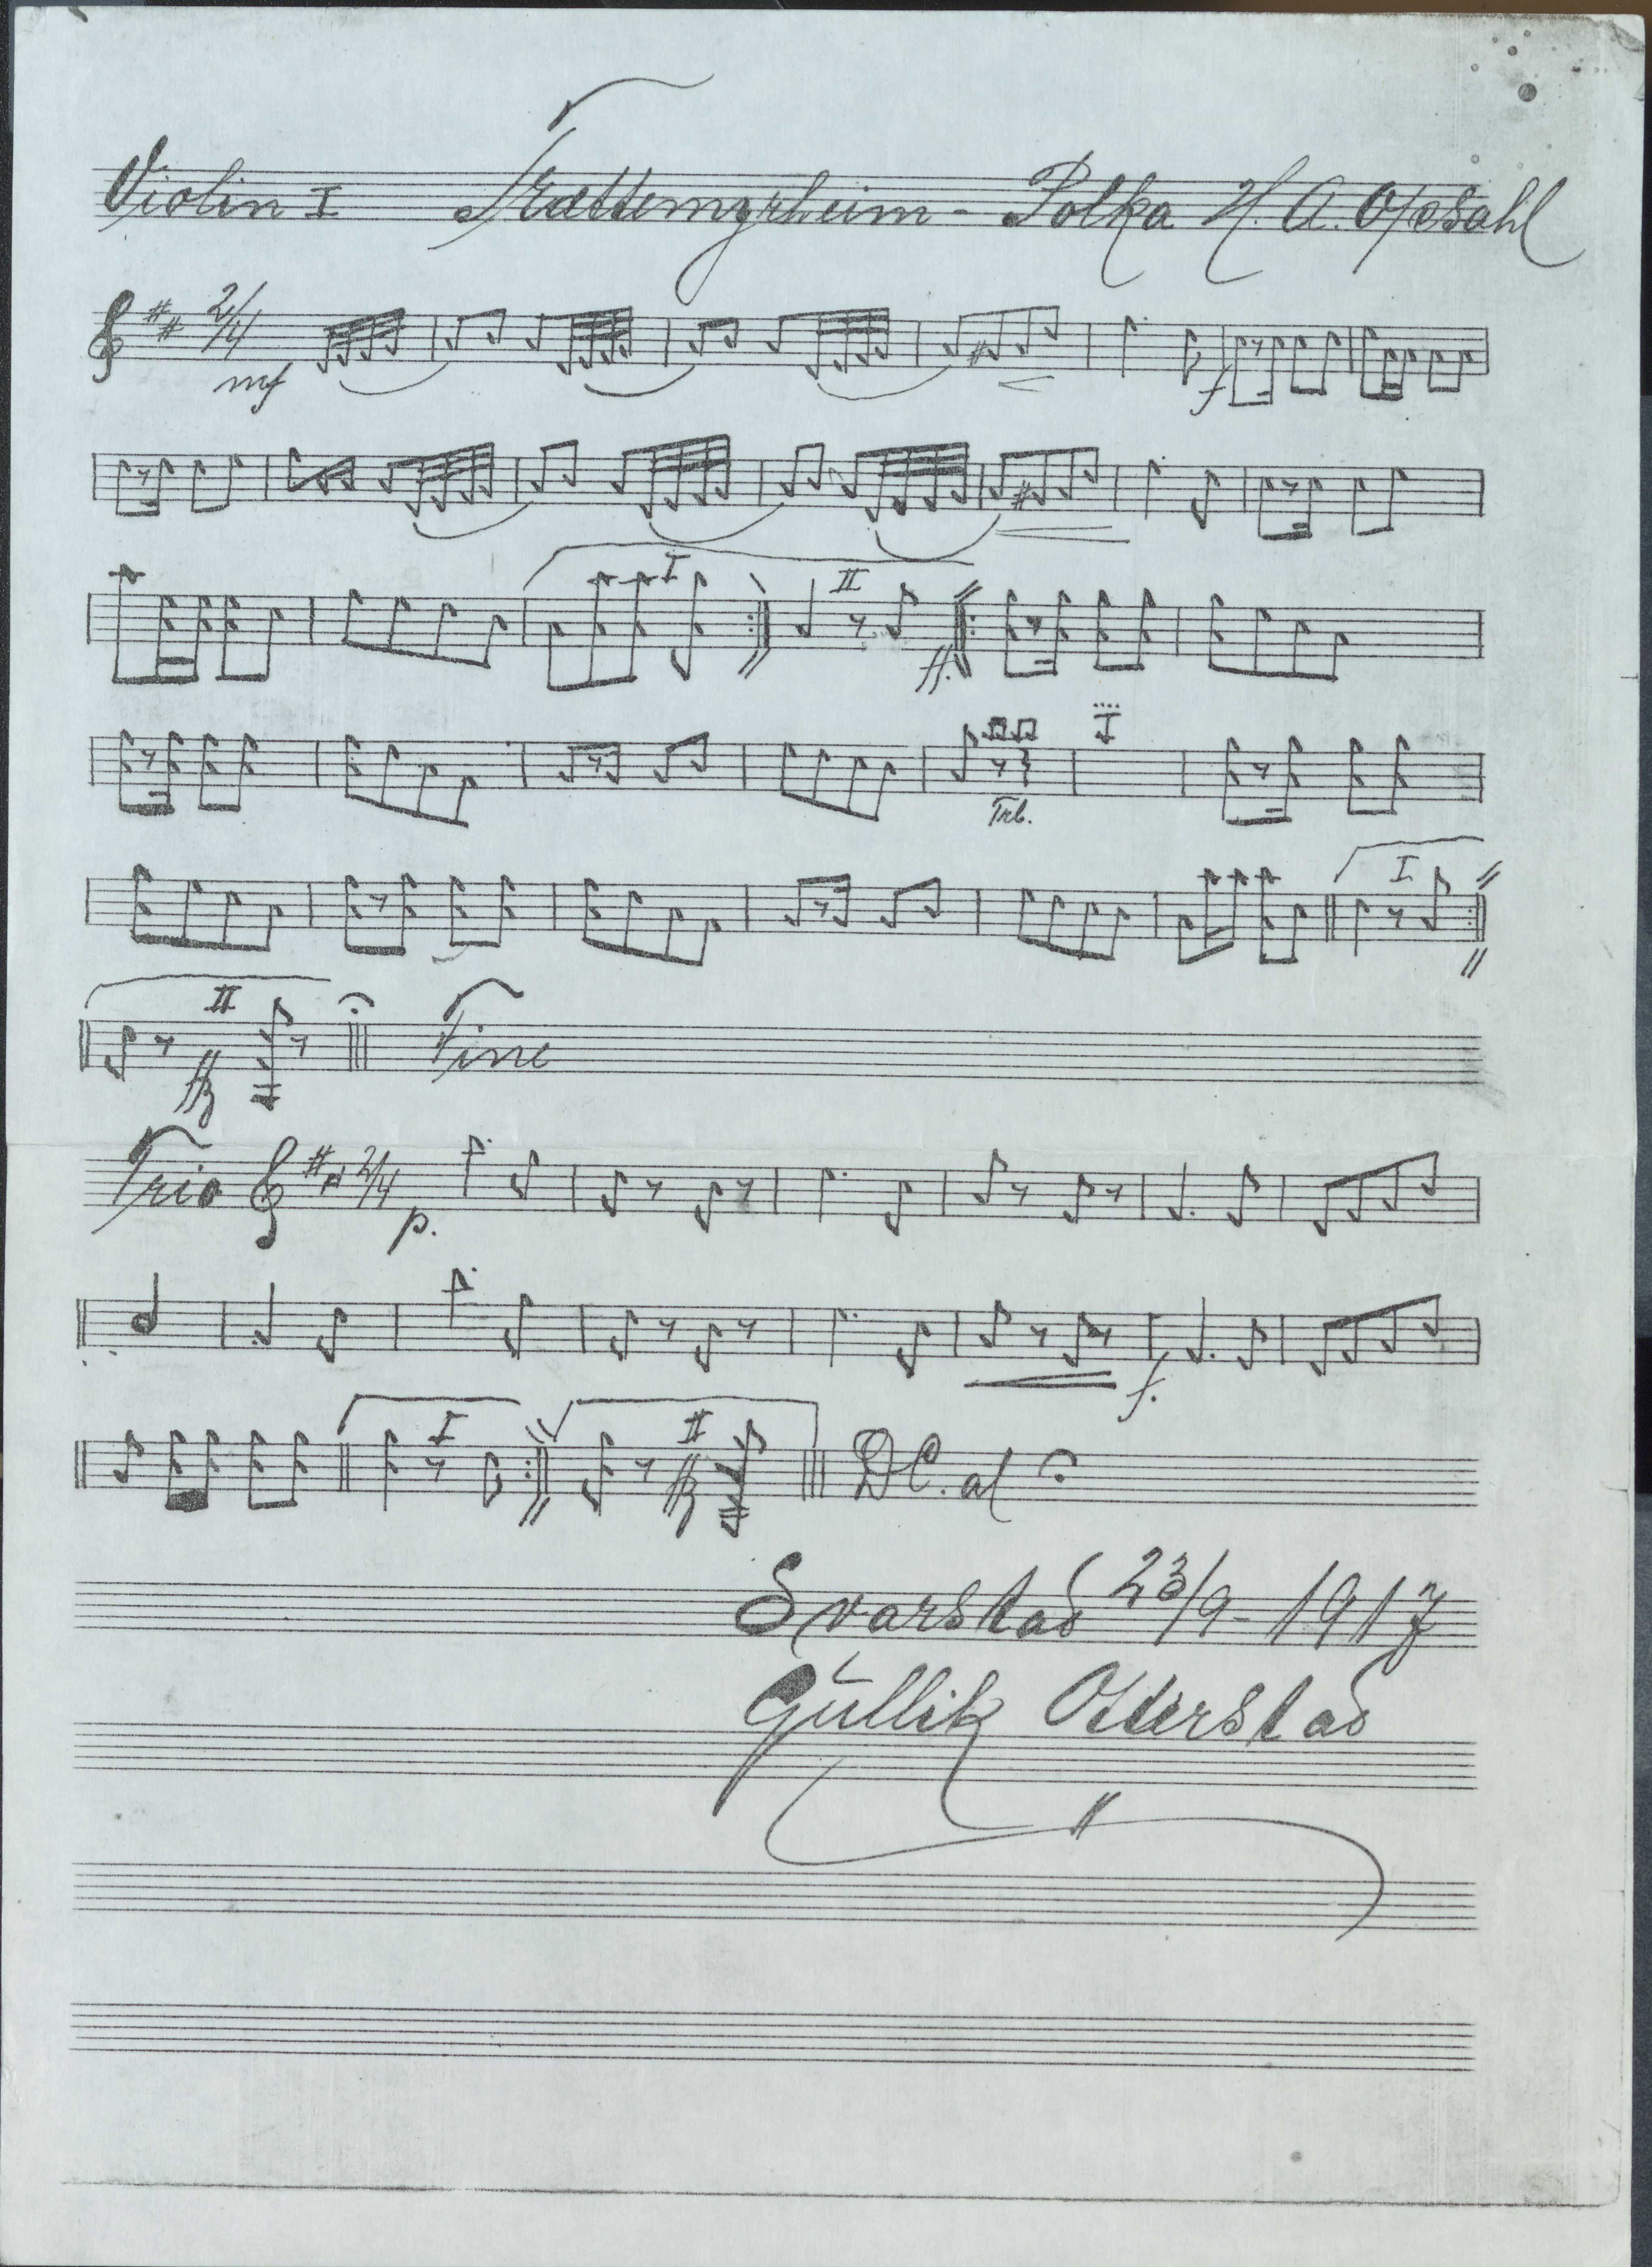 Violin I Trættemyrheim - Polka H. A. Opsahl
2/4
mf f
I II
ff.
Trb.
I
II ffz Fine
Trio 2/4 p.
f.
I II ffz D C. al
Svarstad 23/9 - 1917
Gullik Otterstad